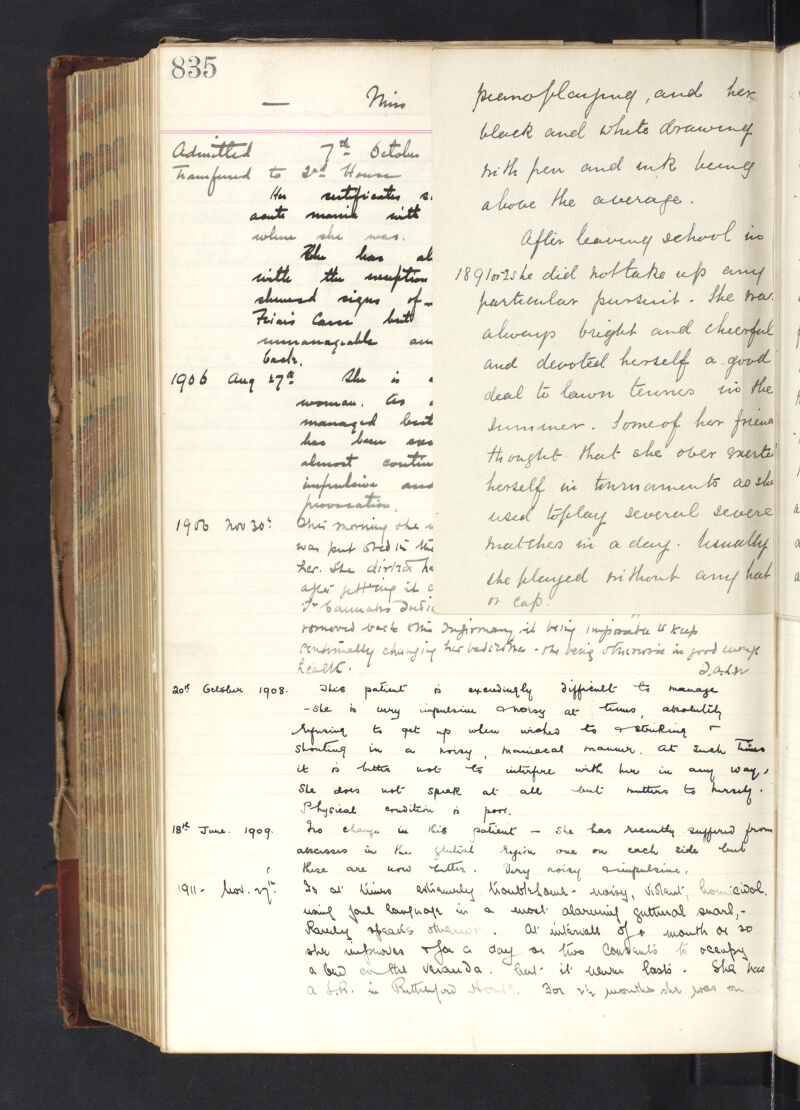 835
— Miss
Admitted 7th October
Transferred to 2nd House
Her certificates s
acute mania with
when she was.
She has al
with the exception
shewed signs of
Friars Carse but
unmanageable an
back.
1906 Aug 27th She is a
woman. As a
managed but
has been exc
almost contin
impulsive and
provocation.
1906 Nov 30th This morning she
was put bed in the
her. She
after getting it
removed back to the Infirmary it being impossible to keep
continually changing her bedclothes - she being otherwise in good enough
health.
20th October 1908. This patient is exceedingly difficult to manage
- she is very impulsive & noisy at times, absolutely
refusing to get up when wished to & striking &
shouting in a noisy, maniacal manner. At such times
it is better not to interfere with her in any way,
She does not speak at all but mutters to herself.
Physical condition is poor.
18th June. 1909. No change in this patient - she has recently suffered from
abscesses in the gluteal region one on each side but
these are now better. Very noisy & impulsive.
1911 - Nov. 27th. Is at times extremely troublesome - noisy, violent, homicidal,
using foul language in a most alarming guttural snarl, -
Rarely speaks otherwise. At intervals of a month or so
she improves & for a day or two consents to occupy
a bed on the veranda. but it never lasts. She has
a S.R. in Rutherford House. For 2½ months she was on
pianoplaying, and her
black and white drawing
with pen and ink being
above the average.
After leaving school in
1891 or 2 she did not take up any
particular pursuit - She was
always bright and cheerful
and devoted herself a good
deal to lawn tennis in the
summer. Some of her friend
thought that she over exerted
herself in tournaments as she
used to play several severe
matches in a day. Usually
she played without any hat
or cap.